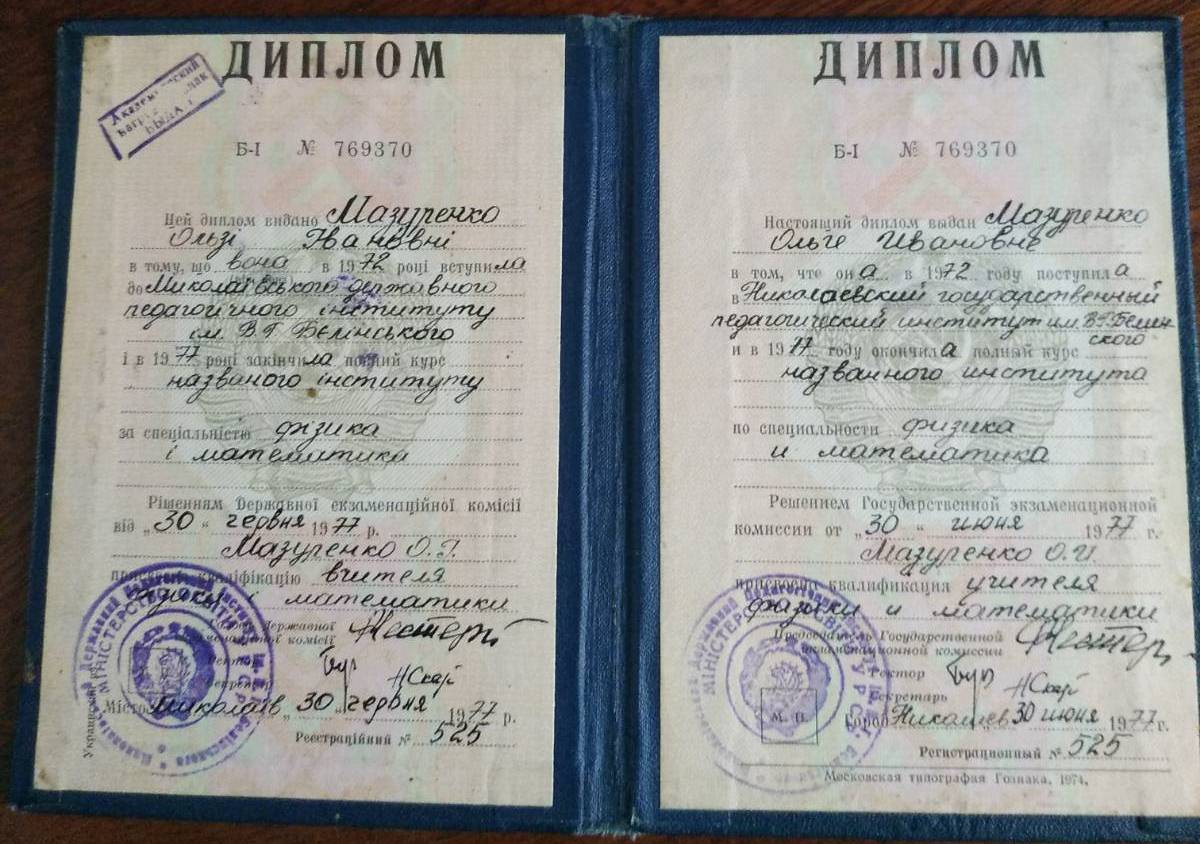 ДИПЛОМ
Б-I № 769370
Цей диплом видано Мазуренко
Ользі Івановні
в тому, що вона в 1972 році вступила
до Миколаївського державного
педагогічного інституту
ім. В.Г. Бєлінського
і в 1977 році закінчила повний курс
названого інституту
за спеціальністю фізика
і математика
Рішенням Державної екзаменаційної комісії
від „30“ червня 1977 р.
Мазуренко О.І.
присвоєно кваліфікацію вчителя
фізики і математики
Голова Державної
екзаменаційної комісії
Ректор
Секретар
Місто Миколаїв „30 червня 1977 р.
Реєстраційний № 525
ДИПЛОМ
Б-I № 769370
Настоящий диплом выдан Мазуренко
Ольге Ивановне
в том, что она в 1972 году поступила
в Николаевский государственный
педагогический институт им. В.Г. Белин-
ского
и в 1977 году окончила полный курс
названного института
по специальности физика
и математика
Решением Государственной экзаменационной
комиссии от „30“ июня 1977 г.
Мазуренко О.И.
присвоена квалификация учителя
физики и математики
Председатель Государственной
экзаменационной комиссии
Ректор
Секретарь
М. П.
Город Николаев 30 июня 1977 г.
Регистрационный № 525
Московская типография Гознака, 1974.